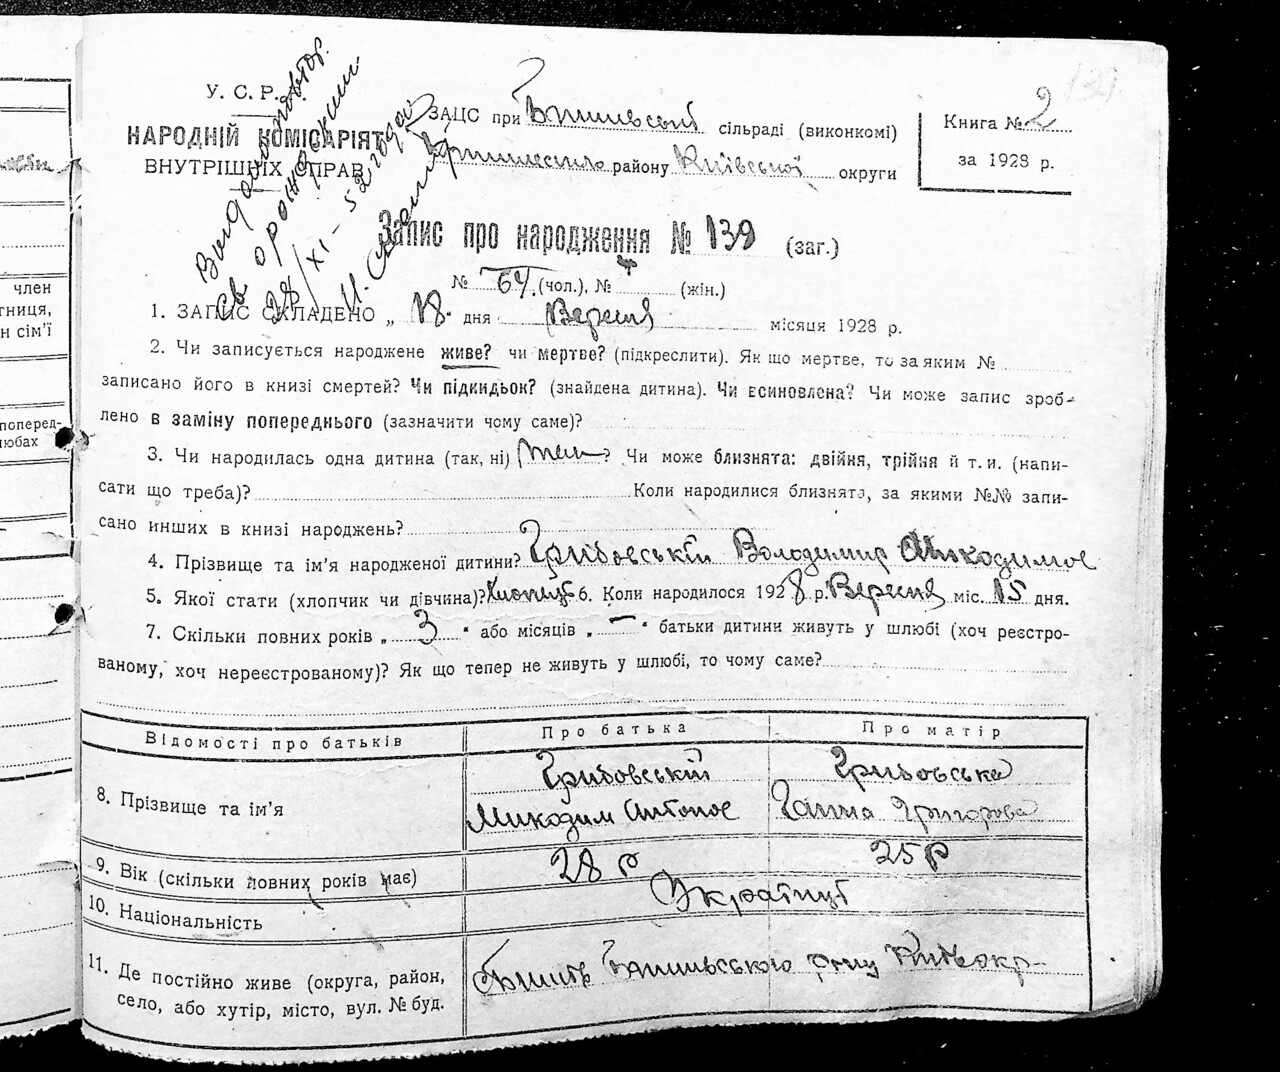 член
тниця,
н сім'ї
поперед-
любах
139
У. С. Р.
НАРОДНІЙ КОМІСАРІЯТ
ВНУТРІШНІХ СПРАВ
28/XI - 52 года
ЗАЦС при сільраді (виконкомі)
району Київської округи
Книга № 2
за 1928 р.
Запис про народження № 139 (заг.)
№ 64 (чол.), № (жін.)
1. ЗАПИС СКЛАДЕНО „ 18 дня Вересня місяця 1928 р.
2. Чи записується народжене живе? чи мертве? (підкреслити). Як що мертве, то за яким №
записано його в книзі смертей? Чи підкидьок? (знайдена дитина). Чи всиновлена? Чи може запис зроб-
лено в заміну попереднього (зазначити чому саме)?
3. Чи народилась одна дитина (так, ні) так? Чи може близнята: двійня, трійня й т. и. (напи-
сати що треба)? Коли народилися близнята, за якими №№ запи-
сано инших в книзі народжень?
4. Прізвище та ім'я народженої дитини? Грибовській Володимир Микодимов
5. Якої стати (хлопчик чи дівчина)? Хлопець 6. Коли народилося 1928 р. Вересня міс. 15 дня.
7. Скільки повних років „ 3 " або місяців „ — " батьки дитини живуть у шлюбі (хоч реєстро-
ваному, хоч нереєстрованому)? Як що тепер не живуть у шлюбі, то чому саме?
Відомості про батьків Про батька Про матір
8. Прізвище та ім'я Грибовській Микодим Антонов Грибовська Ганна Григорова
9. Вік (скільки повних років має) 28 р 25 р
10. Національність Українці
11. Де постійно живе (округа, район,
село, або хутір, місто, вул. № буд.